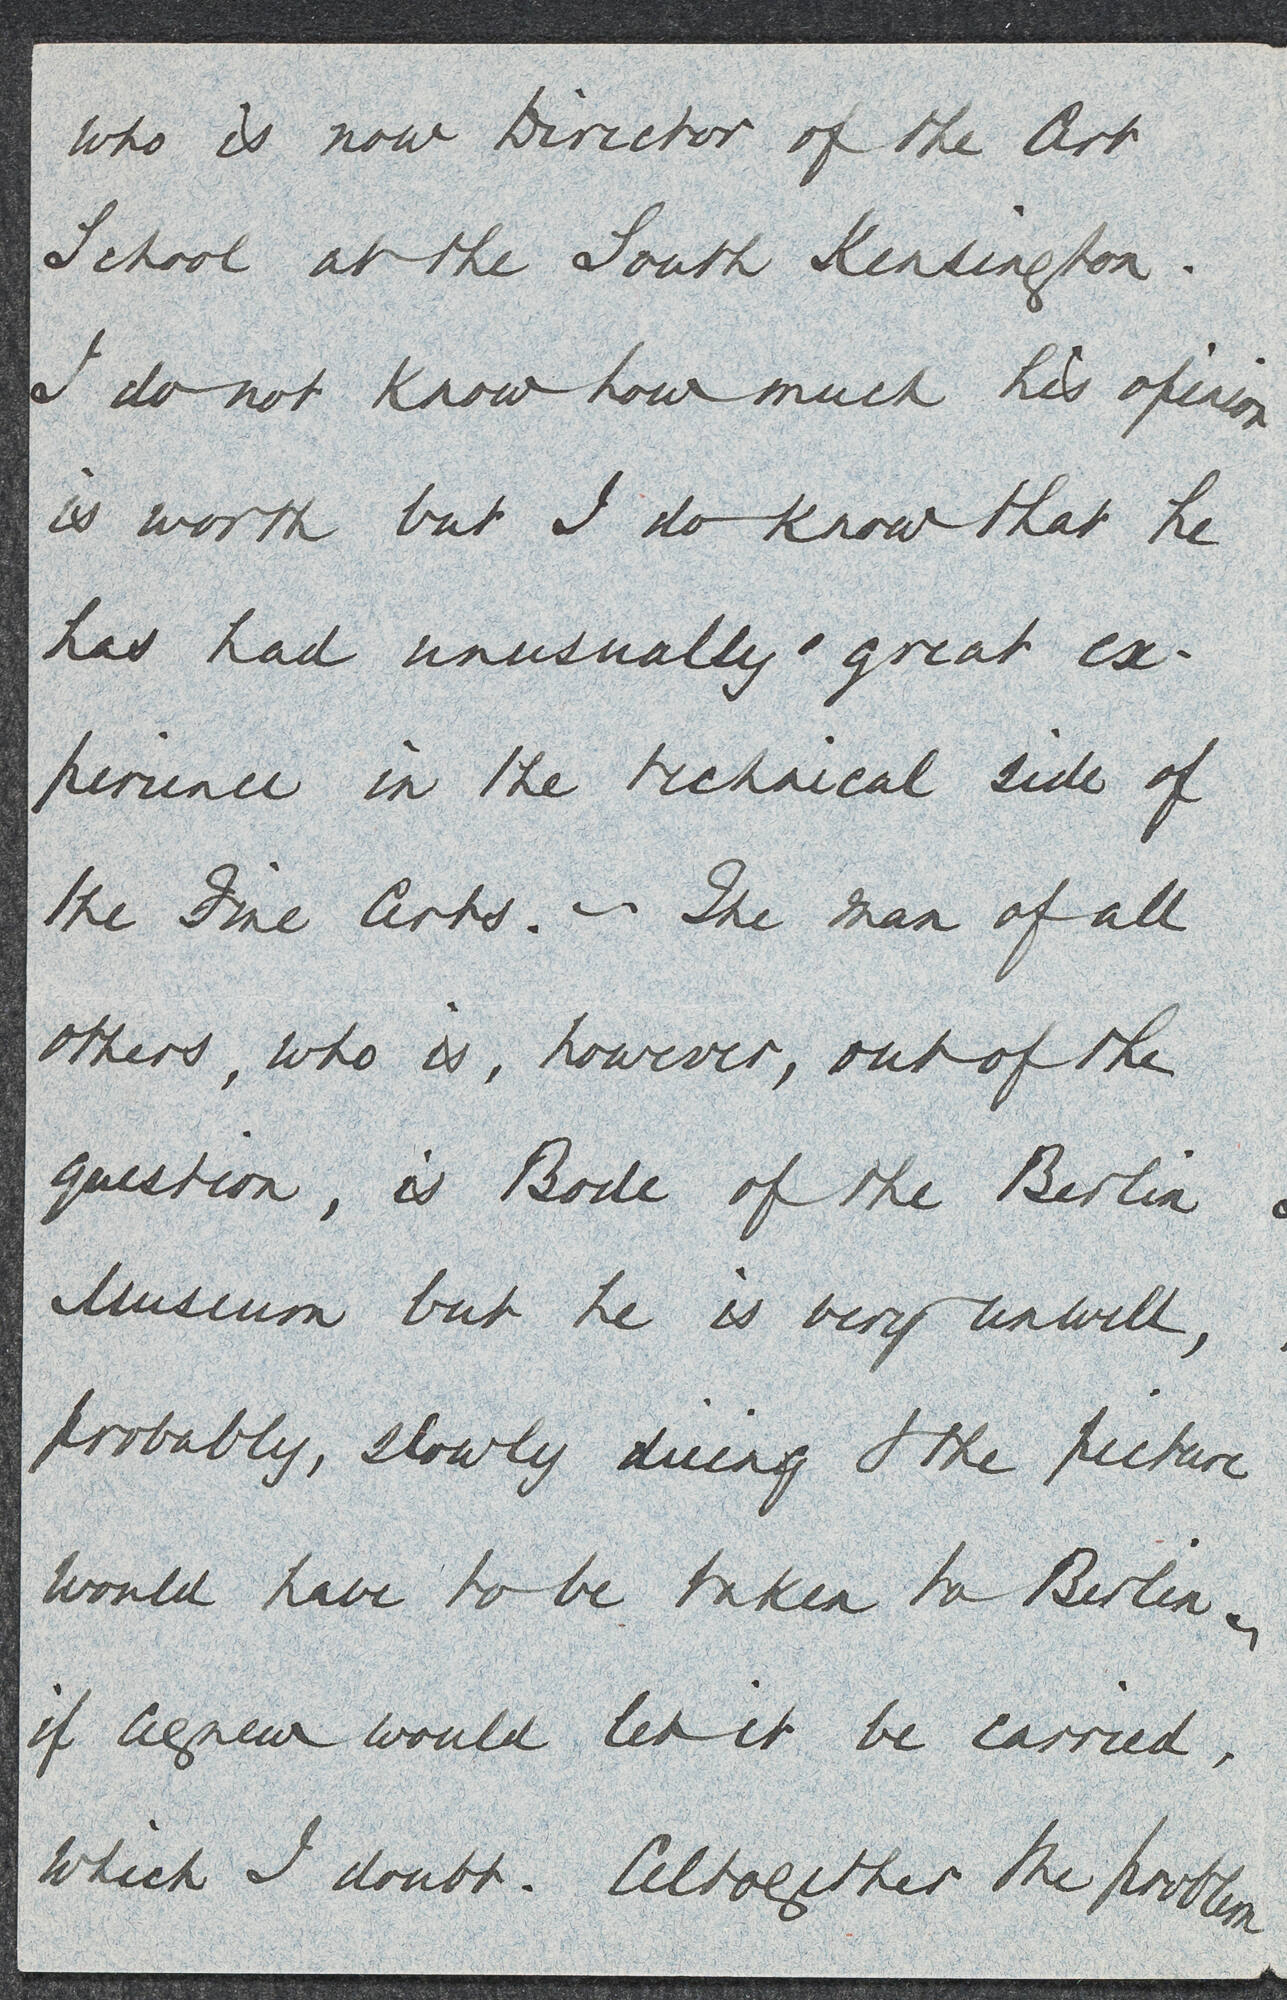 who is now Director of the Art
School at the South Kensington.
I do not know how much his opinion
is worth but I do know that he
has had unusually great ex-
perience in the technical side of
the Fine Arts. ~ The man of all
others, who is, however, out of the
question, is Bode of the Berlin
Museum but he is very unwell,
probably, slowly diing & the picture
would have to be taken to Berlin,
if Agnew would let it be carried,
which I doubt. Altogether the problem